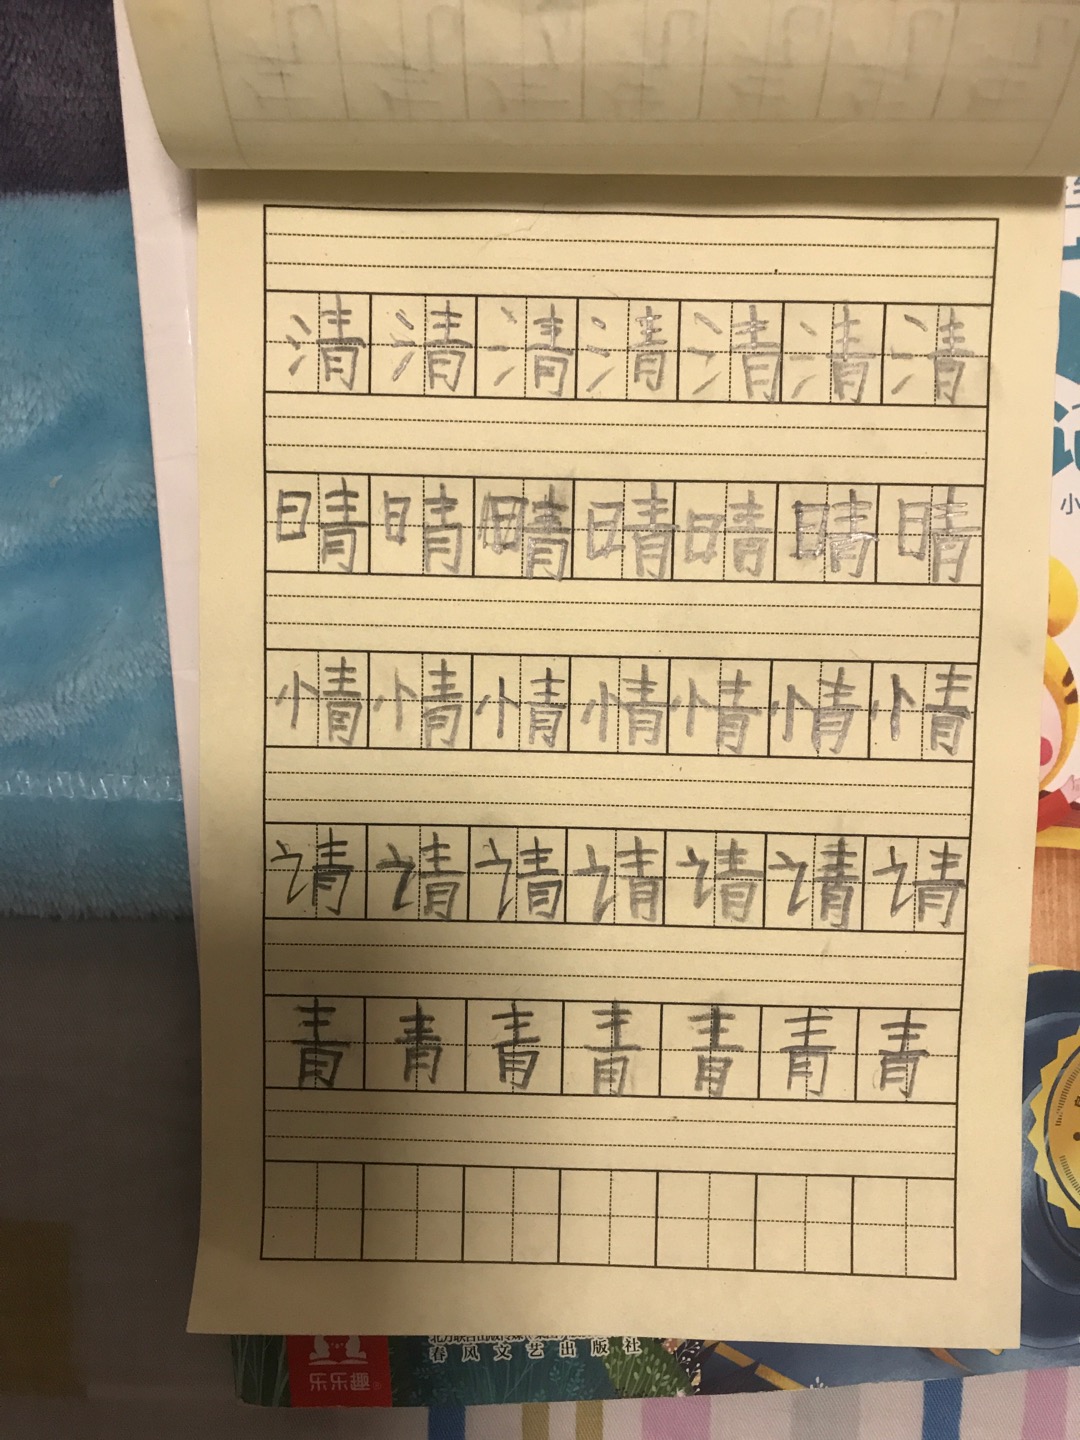 清清清清清清清
晴晴晴晴晴晴晴
情情情情情情情
请请请请请请请
青青青青青青青
小
春风文艺出版社
乐乐趣